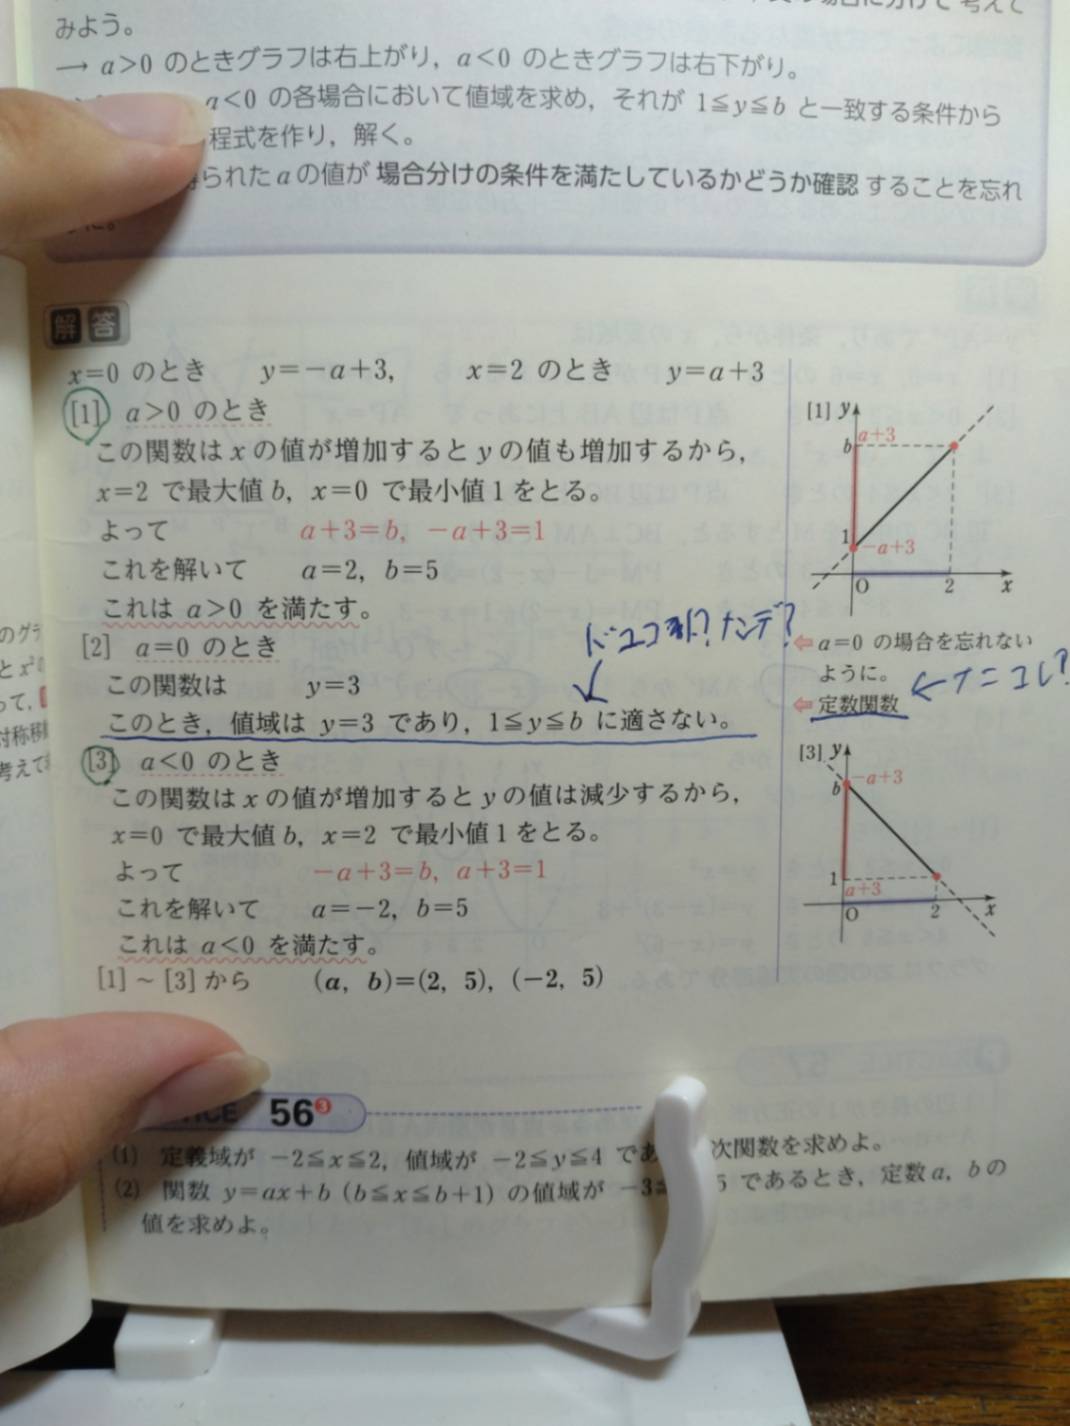 みよう。
→ a>0 のときグラフは右上がり，a<0 のときグラフは右下がり。
a<0 の各場合において値域を求め，それが 1≦y≦b と一致する条件から
程式を作り，解く。
られたaの値が 場合分けの条件を満たしているかどうか確認 することを忘れ
に。
解答
x=0 のとき y=-a+3, x=2 のとき y=a+3
[1] a>0 のとき
この関数は x の値が増加すると y の値も増加するから，
x=2 で最大値 b，x=0 で最小値 1 をとる。
よって a+3=b, -a+3=1
これを解いて a=2, b=5
これは a>0 を満たす。
[2] a=0 のとき
この関数は y=3
このとき，値域は y=3 であり，1≦y≦b に適さない。
[3] a<0 のとき
この関数は x の値が増加すると y の値は減少するから，
x=0 で最大値 b，x=2 で最小値 1 をとる。
よって -a+3=b, a+3=1
これを解いて a=-2, b=5
これは a<0 を満たす。
[1]～[3] から (a, b)=(2, 5), (-2, 5)
[1] y
a+3
b
1
-a+3
O 2 x
ナンデ？
⇦ a=0 の場合を忘れない
ように。
⇦ 定数関数 ←ナニコレ？
[3] y
-a+3
b
1
a+3
O 2 x
のグラ
と x²
って，
対称移
考えて
56 3
(1) 定義域が -2≦x≦2，値域が -2≦y≦4 であ 次関数を求めよ。
(2) 関数 y=ax+b (b≦x≦b+1) の値域が -3≦ 5 であるとき，定数 a, b の
値を求めよ。